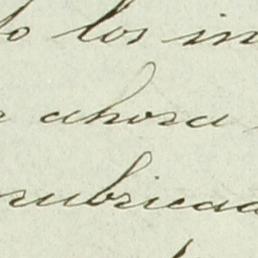 los in
ahora
rubricad